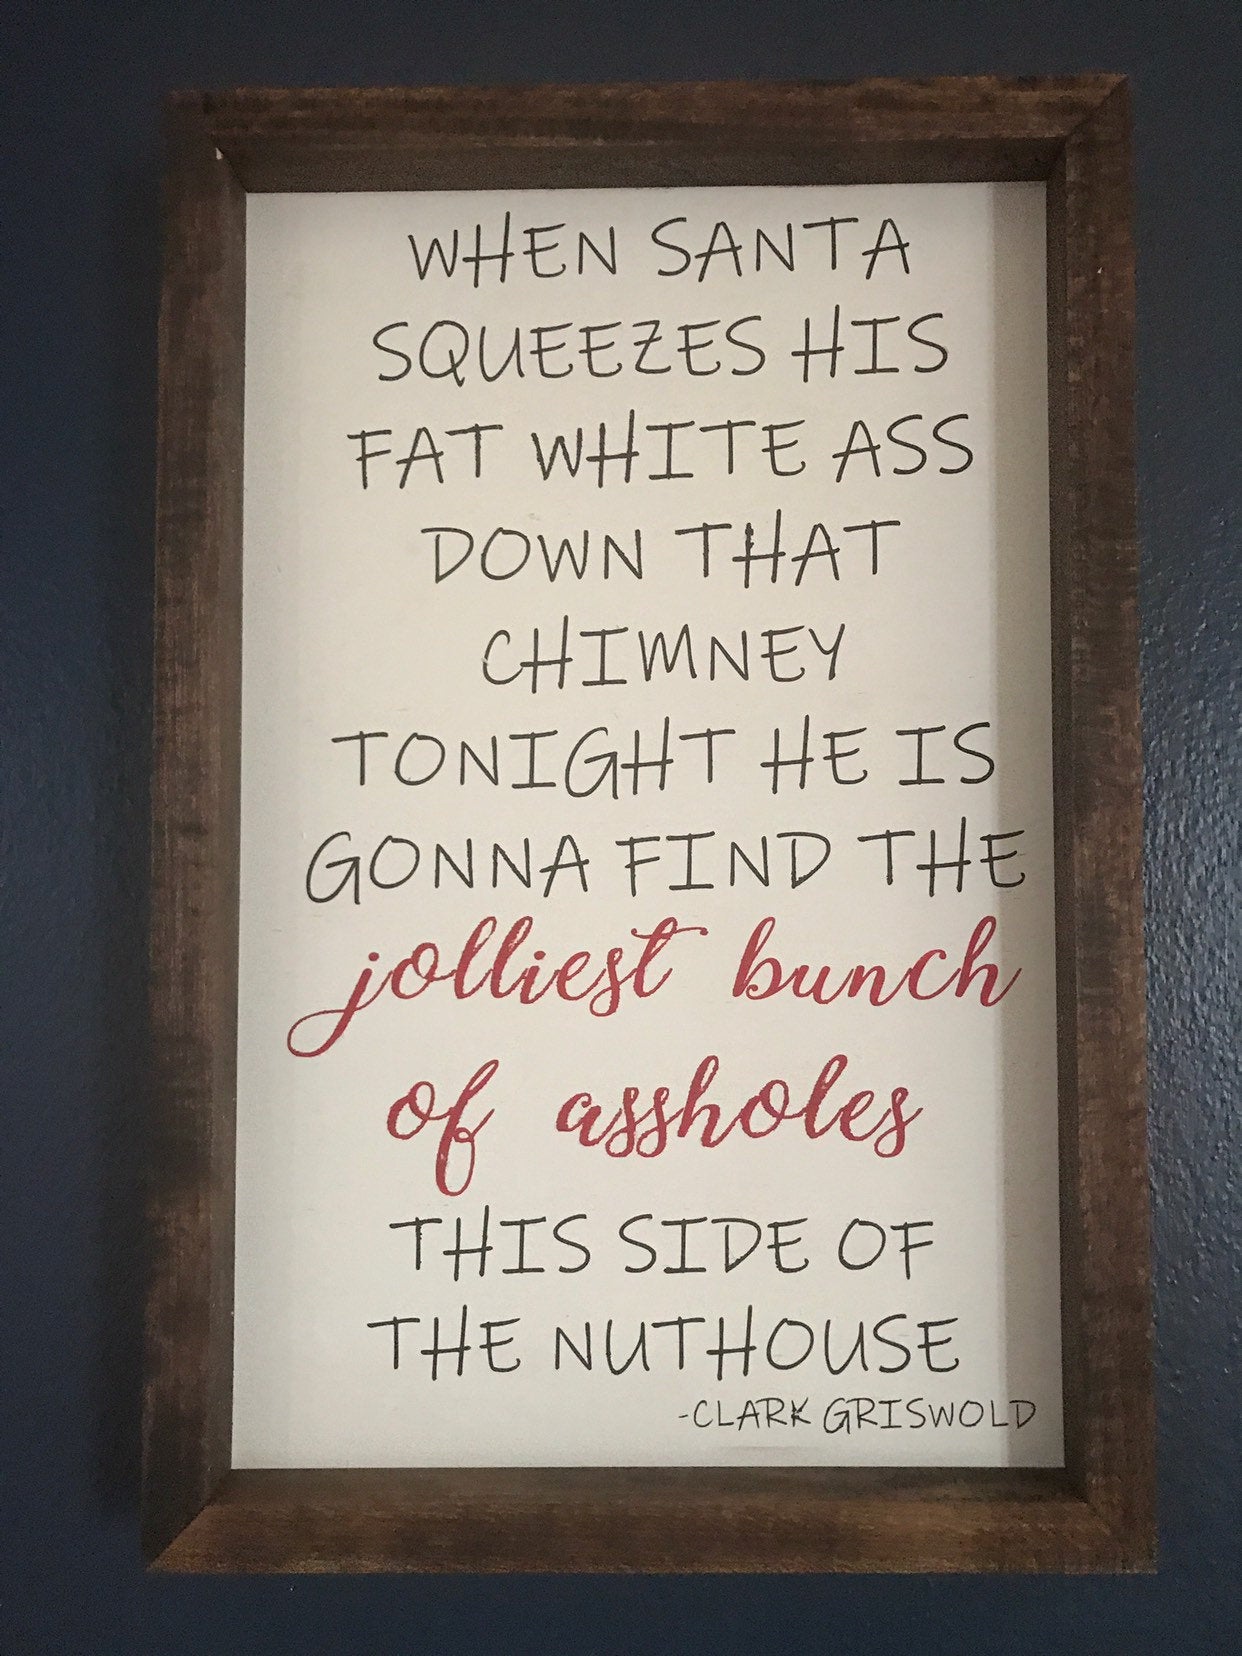 WHEN SANTA
SQUEEZES HIS
FAT WHITE ASS
DOWN THAT
CHIMNEY
TONIGHT HE IS
GONNA FIND THE
jolliest bunch
of assholes
THIS SIDE OF
THE NUTHOUSE
-CLARK GRISWOLD